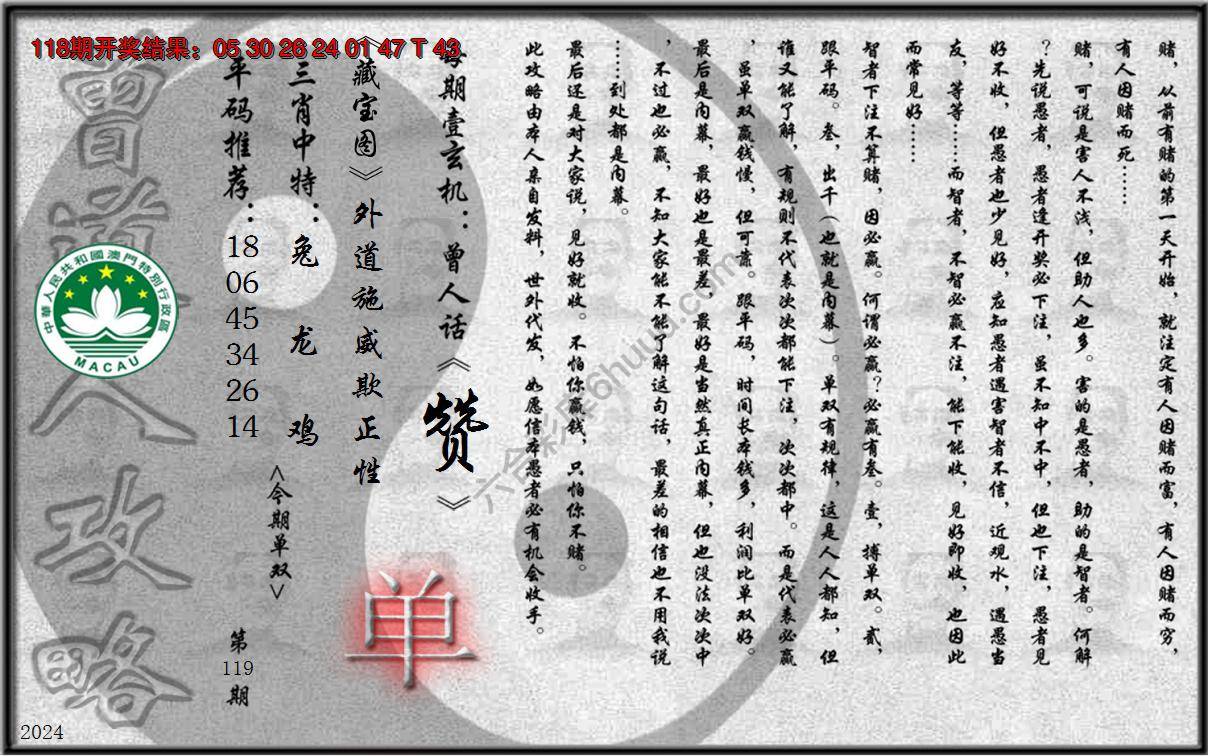 118期开奖结果：05 30 26 24 01 47 T 43
赌，从前有赌的第一天开始，就注定有人因赌而富，有人因赌而穷，
有人因赌而死……
赌，可说是害人不浅，但助人也多。害的是愚者，助的是智者。何解
？先说愚者，愚者逢开奖必下注，虽不知中不中，但也下注，愚者见
好不收，但愚者也少见好，应知愚者遇害智者不信，近观水，遇愚当
友，等等……而智者，不智必赢不注，能下能收，见好即收，也因此
而常见好……
智者下注不算赌，因必赢。何谓必赢？必赢有叁。壹，搏单双。贰，
跟平码。叁，出千（也就是内幕）。单双有规律，这是人人都知，但
谁又能了解，有规则不代表次次都能下注，次次都中。而是代表必赢
，虽单双赢钱慢，但可靠。跟平码，时间长本钱多，利润比单双好。
最后是内幕，最好也是最差，最好是当然真正内幕，但也没法次次中
，不过也必赢，不知大家能不能了解这句话，最差的相信也不用我说
……到处都是内幕。
最后还是对大家说，见好就收。不怕你赢钱，只怕你不赌。
此攻略由本人亲自发料，世外代发，如愿信本愚者必有机会收手。
每期壹玄机：曾人话《赞》
《藏宝图》外道施威欺正性
三肖中特：兔 龙 鸡
平码推荐：18 06 45 34 26 14
<今期单双>
单
第119期
曾道人攻略
中華人民共和國澳門特別行政區
MACAU
2024